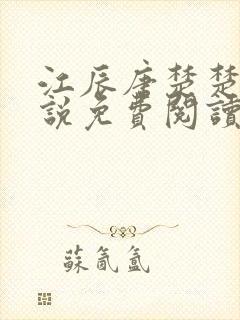 江辰唐楚楚
說免費閱讀
蘇氤氳